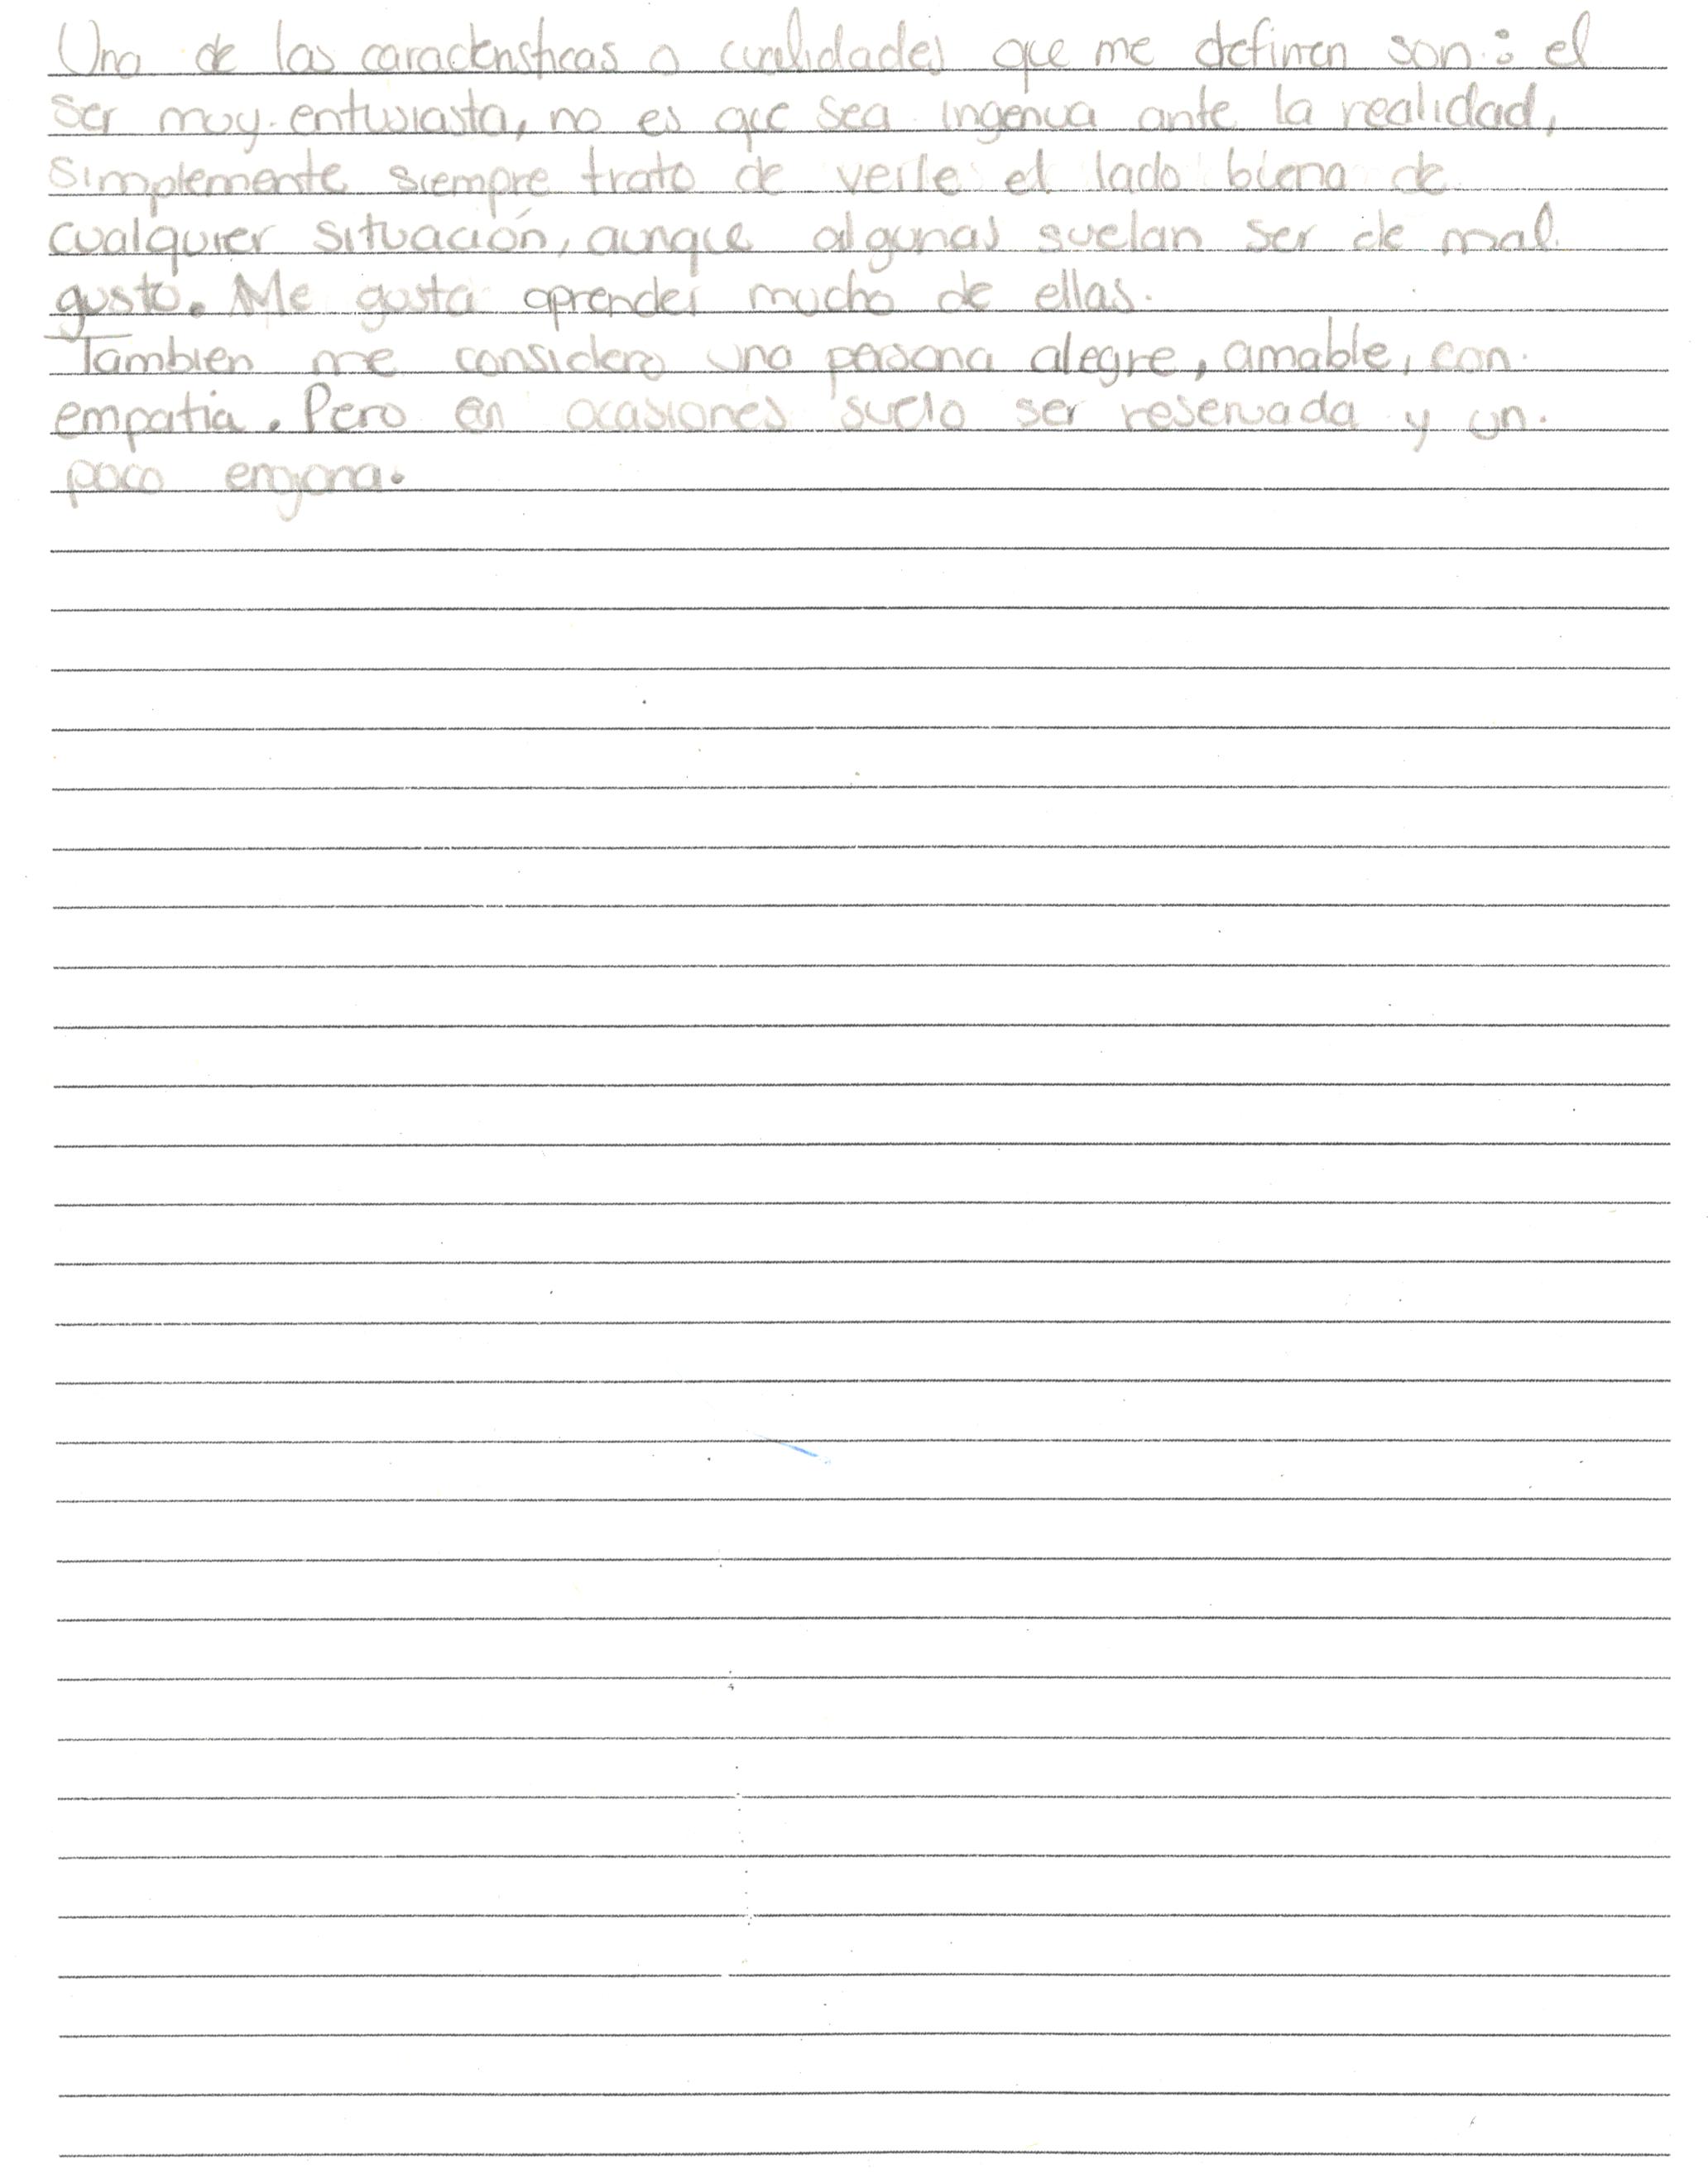 Una de las caracteristicas o cualidades que me definen son: el
ser muy entusiasta, no es que sea ingenua ante la realidad,
simplemente siempre trato de verle el lado bueno de
cualquier situación, aunque algunas suelan ser de mal
gusto. Me gusta aprender mucho de ellas.
Tambien me considero una persona alegre, amable, con
empatia. Pero en ocasiones suelo ser reservada y un
poco enojona.